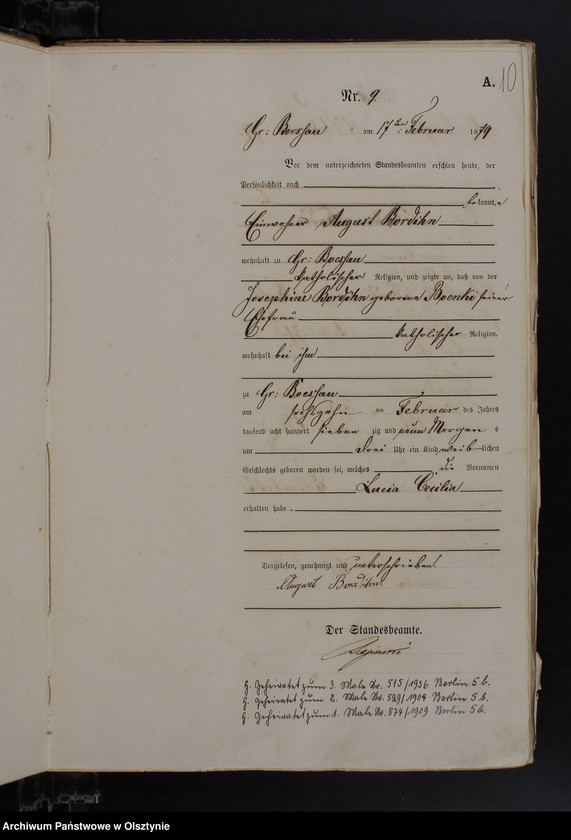 A. 10
Nr. 9.
Gr: Boessau am 17ten Februar 1879
Vor dem unterzeichneten Standesbeamten erschien heute, der
Persönlichkeit nach
bekannt, e
Einwohner August Bordihn
wohnhaft zu Gr: Boessau
katholischer Religion, und zeigte an, daß von der
Josephine Bordihn geborene Boenki seiner
Ehefrau
katholischer Religion,
wohnhaft bei ihm
zu Gr: Boessau
am sechszehn ten Februar des Jahres
tausend acht hundert sieben zig und neun Morgen s
um Drei Uhr ein Kind weib lichen
Geschlechts geboren worden sei, welches die Vornamen
Lucia Cecilia
erhalten habe.
Vorgelesen, genehmigt und unterschrieben.
August Bordihn
Der Standesbeamte.
H. Geheiratet zum 3. Male Nr. 515/1936 Berlin 5 b.
H. Geheiratet zum 2. Male Nr. /19 Berlin 5 b.
H. Geheiratet zum 1. Male Nr. 874/1909 Berlin 5 b.
Archiwum Państwowe w Olsztynie